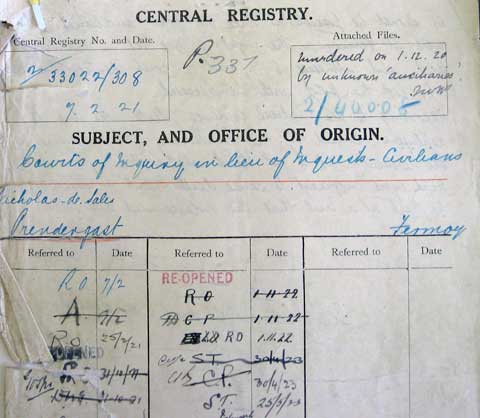 CENTRAL REGISTRY.
Central Registry No. and Date.
Attached Files.
2/33022/308
P.337
murdered on 1.12.20
by unknown auxiliaries
7.2.21
2/40005
SUBJECT, AND OFFICE OF ORIGIN.
Courts of Inquiry in lieu of Inquests - Civilians
Nicholas de Sales
Prendergast
Fermoy
Referred to Date Referred to Date Referred to Date
RO 7/2 RE-OPENED
A. 9/2 RO 1.11.22
RO 25/2/21 CP 1.11.22
RO 1.11.22
OPENED ST. 30/4/23
CP. 30/4/23
ST. 25/5/23